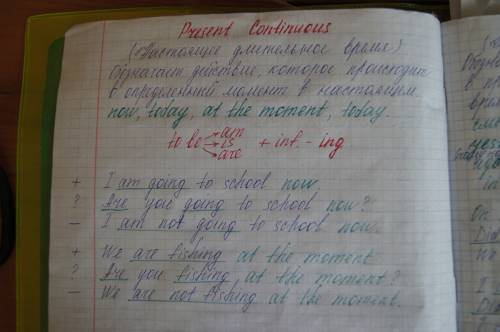 Present Continuous
(Настоящее длительное время)
Обозначает действие, которое происходит
в определенный момент в настоящем.
now, today, at the moment, today.
to be am is are + inf. - ing
+ I am going to school now.
? Are you going to school now?
- I am not going to school now.
+ We are fishing at the moment
? Are you fishing at the moment?
- We are not fishing at the moment.